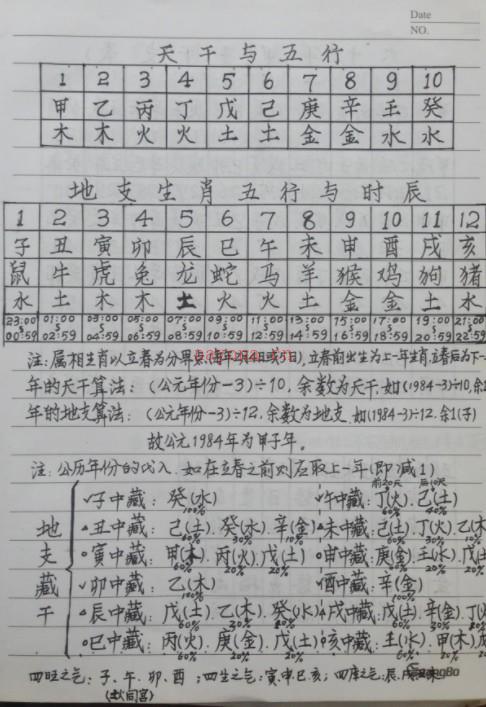 Date
NO.
天干与五行
1 2 3 4 5 6 7 8 9 10
甲 乙 丙 丁 戊 己 庚 辛 壬 癸
木 木 火 火 土 土 金 金 水 水
地支生肖五行与时辰
1 2 3 4 5 6 7 8 9 10 11 12
子 丑 寅 卯 辰 巳 午 未 申 酉 戌 亥
鼠 牛 虎 兔 龙 蛇 马 羊 猴 鸡 狗 猪
水 土 木 木 土 火 火 土 金 金 土 水
23:00 01:00 03:00 05:00 07:00 09:00 11:00 13:00 15:00 17:00 19:00 21:00
00:59 02:59 04:59 06:59 08:59 10:59 12:59 14:59 16:59 18:59 20:59 22:59
注:属相生肖以立春为分界,立春前出生为上一年生肖,立春后为下一
年的天干算法:(公元年份-3)÷10,余数为天干,如(1984-3)÷10,余1
年的地支算法:(公元年份-3)÷12,余数为地支,如(1984-3)÷12,余1(子)
故公元1984年为甲子年。
注:公历年份的代入,如在立春之前则应取上一年(即减1)
前20天 后10天
子中藏:癸(水) 午中藏:丁(火)、己(土)
100% 60% 40%
丑中藏:己(土)、癸(水)、辛(金) 未中藏:己(土)、丁(火)、乙(木
寅中藏:甲(木)、丙(火)、戊(土) 申中藏:庚(金)、壬(水)、戊(土
60% 20% 20% 60% 20%
卯中藏:乙(木) 酉中藏:辛(金)
100% 100%
辰中藏:戊(土)、乙(木)、癸(水) 戌中藏:戊(土)、辛(金)、丁(火
巳中藏:丙(火)、庚(金)、戊(土) 亥中藏:壬(水)、甲(木)
60% 20% 20%
地支藏干
四旺之气:子、午、卯、酉;四生之气:寅、申、巳、亥;四库之气:辰、戌